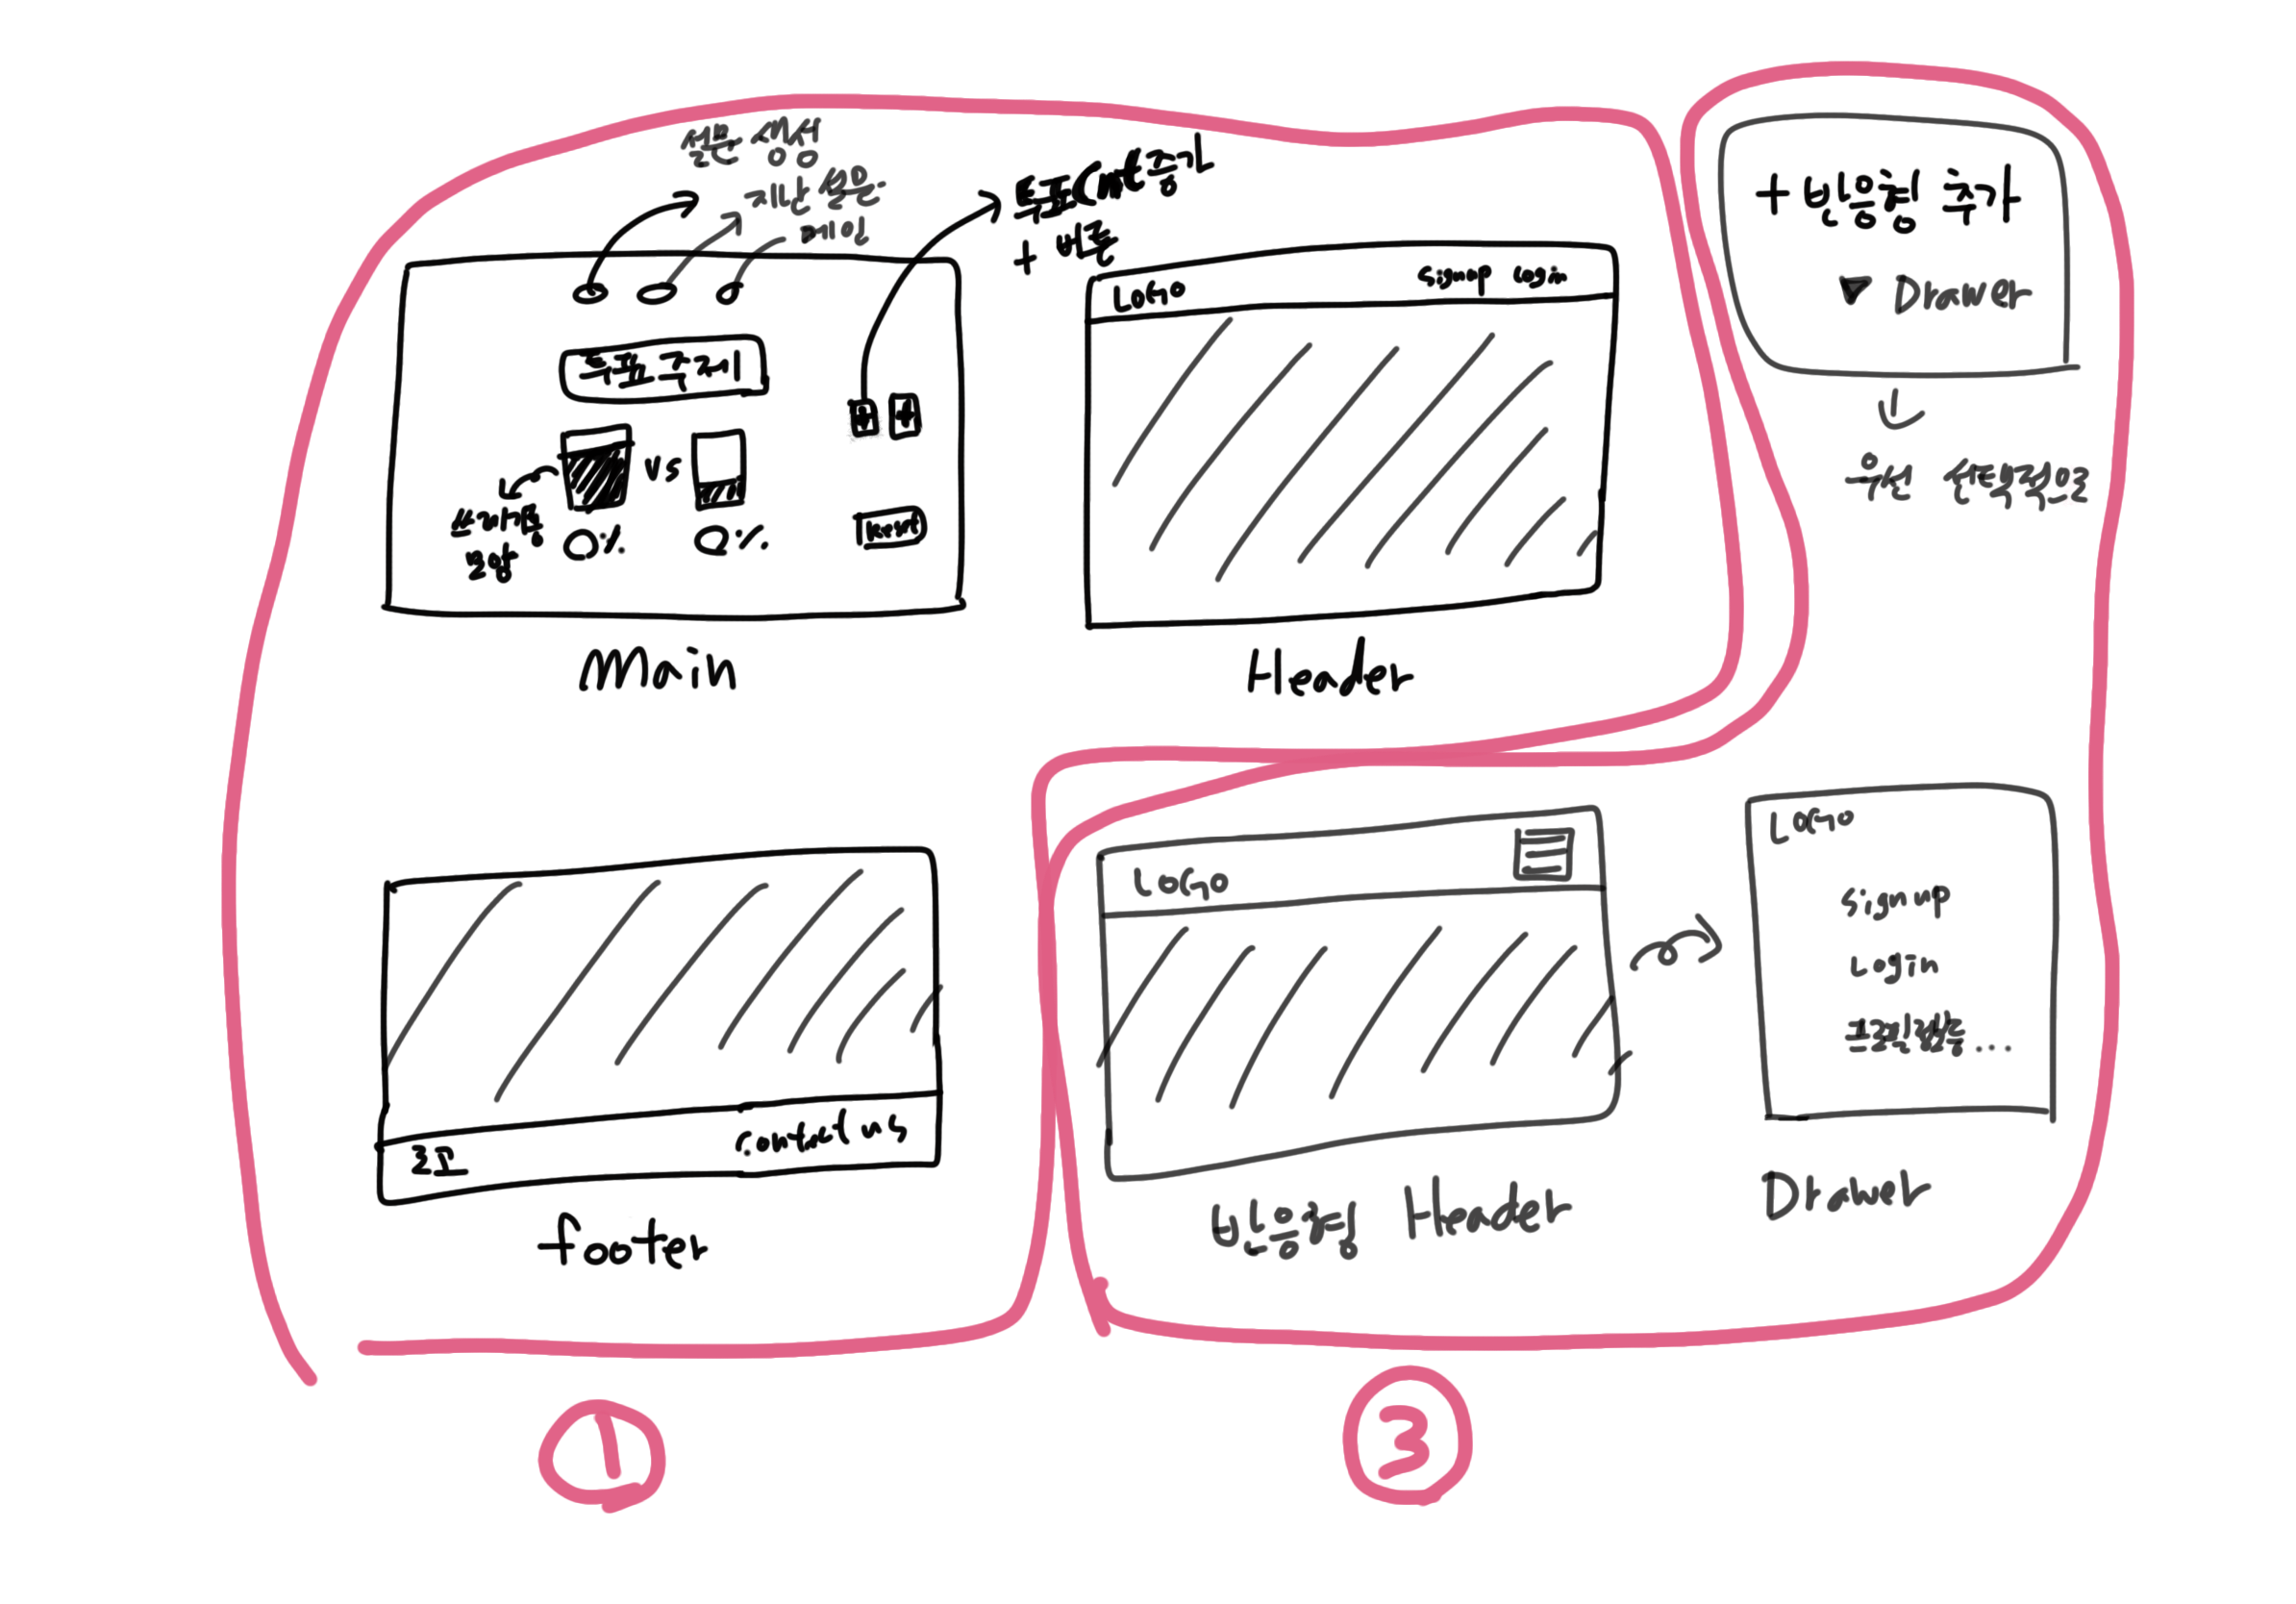 설문 생성
지난 설문
게임
투표 Cnt 증가
+ 버튼
투표 주제
VS
쓰레기통
모양
0%
0%
Reset
Main
LOGO
signup login
Header
+ 반응형 추가
▼ Drawer
우선 선택적으로
로고
contact us
footer
LOGO
반응형 Header
LOGO
signup
login
...
Drawer
1
3